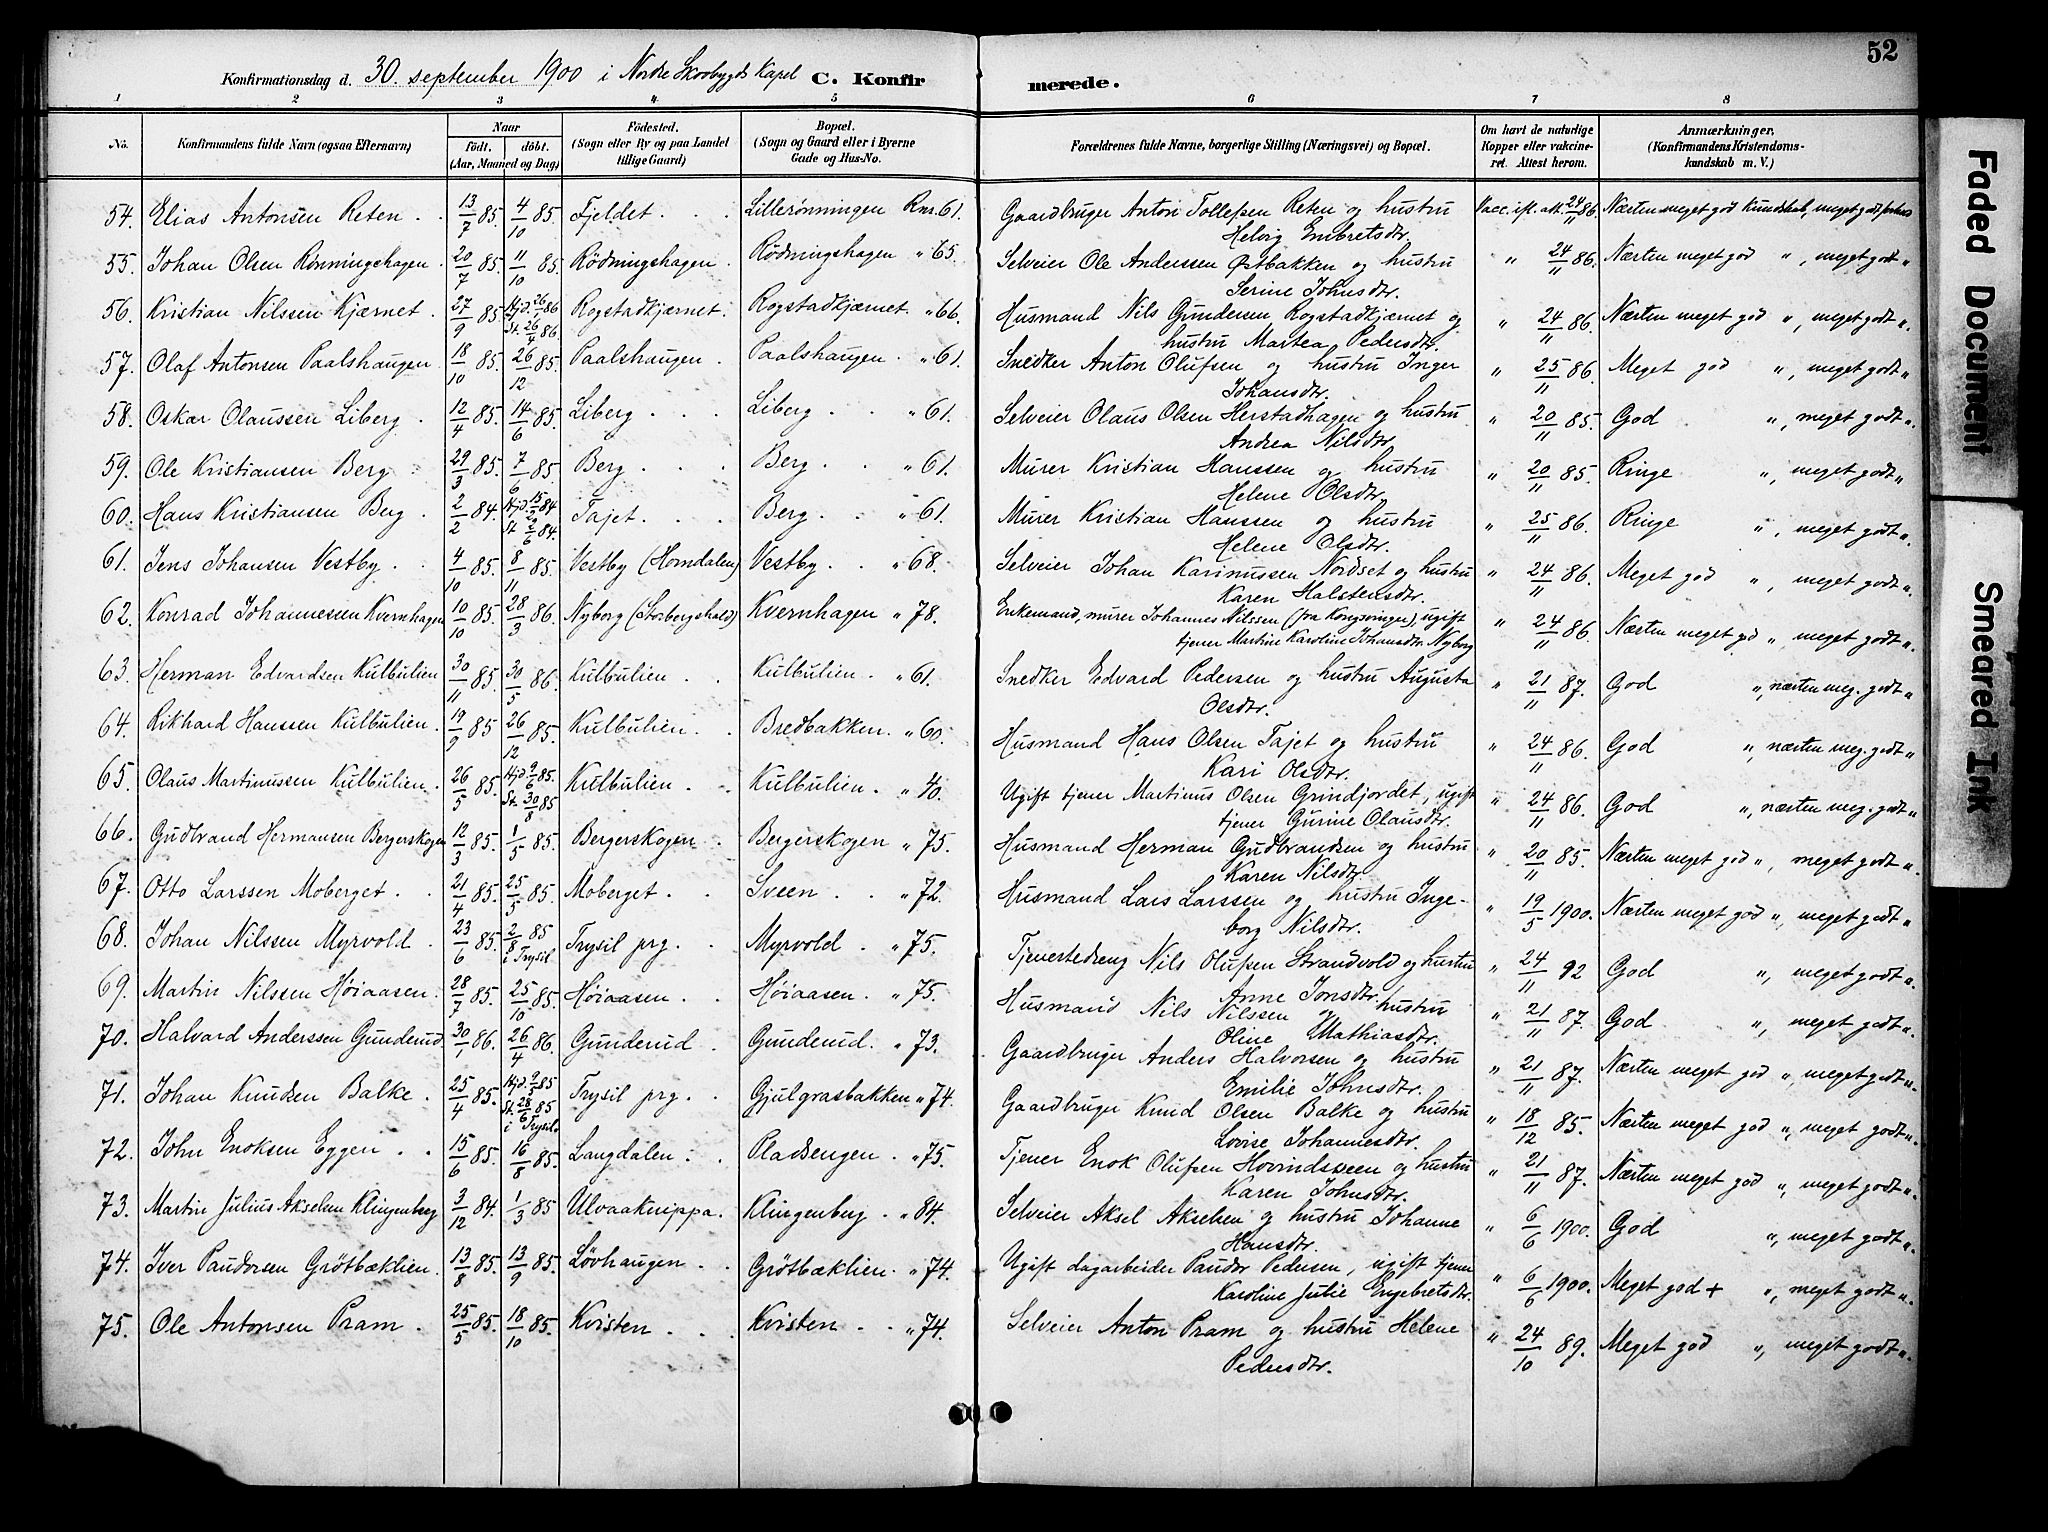 52
Konfirmationsdag d. 30. september 1900 i Nordre Skovbygds Kapel C. Konfirmerede.
1 2 3 4 5 6 7 8
No. Konfirmandens fulde Navn (ogsaa Efternavn) Naar født. døbt. (Aar, Maaned og Dag) Fødested. (Sogn eller By og paa Landet tillige Gaard) Bopæl. (Sogn og Gaard eller i Byerne Gade og Hus-No. Forældrenes fulde Navne, borgerlige Stilling (Næringsvei) og Bopæl. Om havt de naturlige Kopper eller vakcineret. Attest herom. Anmærkninger. (Konfirmandens Kristendomskundskab m. V.)
54. Elias Antonsen Reten . . 13/7 85. 4/10 85. Fjeldet . . Lillerønningen Rnr. 61. Gaardbruger Anton Tollefsen Reten og hustru Vacc. ifl. att. 24/11 86. Nærten meget god Kundskab, meget god
Helvig Embretsdtr.
55. Johan Olsen Rønningshagen . 20/7 85. 11/10 85. Rödningshagen . Rödningshagen " 65. Selveier Ole Anderssen Østbakken og hustru " 24/11 86. Nærten meget god ", meget godt "
Serine Johnsdtr.
56. Kristian Nilssen Kjærnet . 27/9 85. Hjd. 26/1 86 St. 26/4 86. Rogstadkjærnet. Rogstadkjærnet. " 66. Husmand Nils Gundersen Rogstadkjærnet og " 24/11 86. Nærten meget god ", meget godt ".
hustru Martea Pedersdtr.
57. Olaf Antonsen Paalshaugen 18/10 85. 26/12 85. Paalshaugen . Paalshaugen . " 61. Snedker Anton Olufsen og hustru Inger " 25/11 86. Meget god ", meget godt "
Johansdtr.
58. Oskar Olaussen Liberg . 12/4 85. 14/6 85. Liberg . . . Liberg . . " 61. Selveier Olaus Olsen Herstadhagen og hustru " 20/11 85. God ", meget godt ".
Andrea Nilsdtr.
59. Ole Kristiansen Berg . 29/3 85. 7/6 85. Berg . . . Berg . . " 61. Murer Kristian Hanssen og hustru " 20/11 85. Ringe ", meget godt "
Helene Olsdtr.
60. Hans Kristiansen Berg . 2/2 84. Hjd. 15/2 84 St. 2/6 84. Tajet . . . Berg . . " 61. Murer Kristian Hanssen og hustru " 25/11 86. Ringe ", meget godt ".
Helene Olsdtr.
61. Jens Johansen Vestby . . 4/10 85. 8/11 85. Vestby (Horndalen) Vestby . . " 68. Selveier Johan Karinussen Nordset og hustru " 24/11 86. Meget god ", meget godt ".
Karen Halstensdtr.
62. Konrad Johannessen Kvernhagen 10/10 85. 28/3 86. Nyborg Kvernhagen " 78. Enkemand, murer Johannes Nilssen (fra Kongsvinger), ugift " 24/11 86. Nærten meget god ", meget godt ".
tjener Martine Karoline Johansdtr. Nyborg
63. Herman Edvardsen Kulbulien 30/11 85. 30/5 86. Kulbulien . . Kulbulien . " 61. Snedker Edvard Pedersen og hustru Augusta " 21/11 87. God ", nærten meg. godt "
Olsdtr.
64. Rikhard Hanssen Kulbulien . 19/9 85. 26/12 85. Kulbulien . . Bredbakken . " 60. Husmand Hans Olsen Tajet og hustru " 24/11 86. God ", nærten meg. godt "
Kari Olsdtr.
65. Olaus Martinussen Kulbulien . 26/5 85. Hjd. 9/6 85. St. 30/8 85 Kulbulien . . Kulbulien . " 40. Ugift tjener Martinus Olsen Grindjordet, ugift " 24/11 86. God ", nærten meg. godt "
tjener Gurine Olausdtr.
66. Gudbrand Hermansen Bergerskogen 12/3 85. 1/5 85. Bergerskogen . Bergerskogen " 75. Husmand Herman Gudbrandsen og hustru " 20/11 85. Nærten meget god ", meget godt ".
Karen Nilsdtr.
67. Otto Larssen Moberget . . 21/4 85. 25/5 85. Moberget . . Sveen . " 72. Husmand Lars Larssen og hustru Inge- " 19/5 1900. Nærten meget god ", meget godt "
borg Nilsdtr.
68. Johan Nilssen Myrvold . 23/6 85. 2/8 85 i Trysil Trysil prg. . Myrvold . " 75. Tjenestedreng Nils Olufsen Strandvold og hustru " 24/11 92 God ", meget godt ".
Anne Jonsdtr.
69. Martin Nilssen Høiaasen . 28/7 85. 25/10 85. Høiaasen . . Høiaasen . " 75. Husmand Nils Nilssen og hustru " 21/11 87. God ", meget godt ".
Oline Mathiasdtr.
70. Halvard Anderssen Gunderud 30/1 86. 26/4 86. Gunderud . Gunderud . " 73. Gaardbruger Anders Halvorsen og hustru " 21/11 87. Nærten meget god ", meget godt ".
Emilie Johnsdtr.
71. Johan Knudsen Balke . 25/4 85. Hjd. 9/5 85 St. 28/6 85 i Trysil. Trysil prg. . Gjulgrasbakken " 74. Gaardbruger Knud Olsen Balke og hustru " 18/12 85. Nærten meget god ", meget godt ".
Lovise Johannesdtr.
72. John Enoksen Eggen . . 15/6 85. 16/8 85. Langdalen . . Pladsengen . " 75. Tjener Enok Olufsen Hovindsveen og hustru " 21/11 87. Nærten meget god ", meget godt ".
Karen Johnsdtr.
73. Martin Julius Akselsen Klingenberg 3/12 84. 1/3 85 Ulvaakerippa . Klingenberg . " 84. Selveier Aksel Akselsen og hustru Johanne " 6/6 1900. God ", meget godt ".
Hansdtr.
74. Iver Paudorsen Grötbæklien . 13/8 85. 13/9 85. Løvhaugen . . Grötbæklien . " 74. Ugift dagarbeider Paudor Pedersen, ugift tjener " 6/6 1900. Meget god + ", meget godt ".
Karoline Julie Engebretsdtr.
75. Ole Antonsen Pram . 25/5 85. 18/10 85. Kvisten . . Kvisten . . " 74. Selveier Anton Pram og hustru Helene " 24/10 89. Meget god ", meget godt ".
Pedersdtr.
Faded Document
Smeared Ink